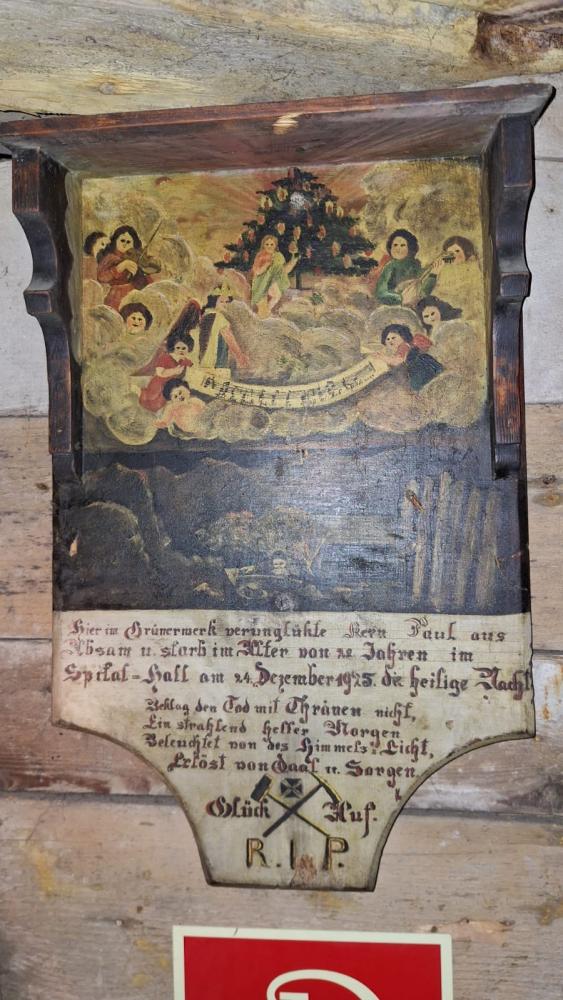 Hier im Grünerwerk verunglükte Kern Paul aus
Absam u. starb im Alter von 22 Jahren im
Spital-Hall am 24. Dezember 1925. die heilige Nacht
Beklag den Tod mit Thränen nicht,
Ein strahlend heller Morgen
Beleuchtet von des Himmels Licht,
Erlöst von Qual u. Sorgen
Glück Auf.
R.I.P.